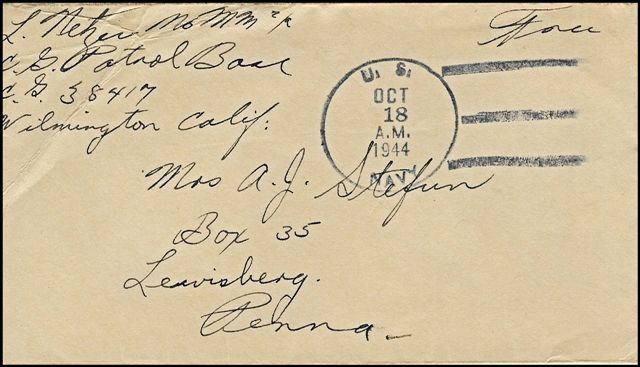 L. Netzer MoMM 2/c
C.G. Patrol Base
C.G. 38417
Wilmington Calif.
Free
U. S.
OCT
18
A.M.
1944
NAVY
Mrs A. J. Stefun
Box 35
Lewisberg.
Penna.